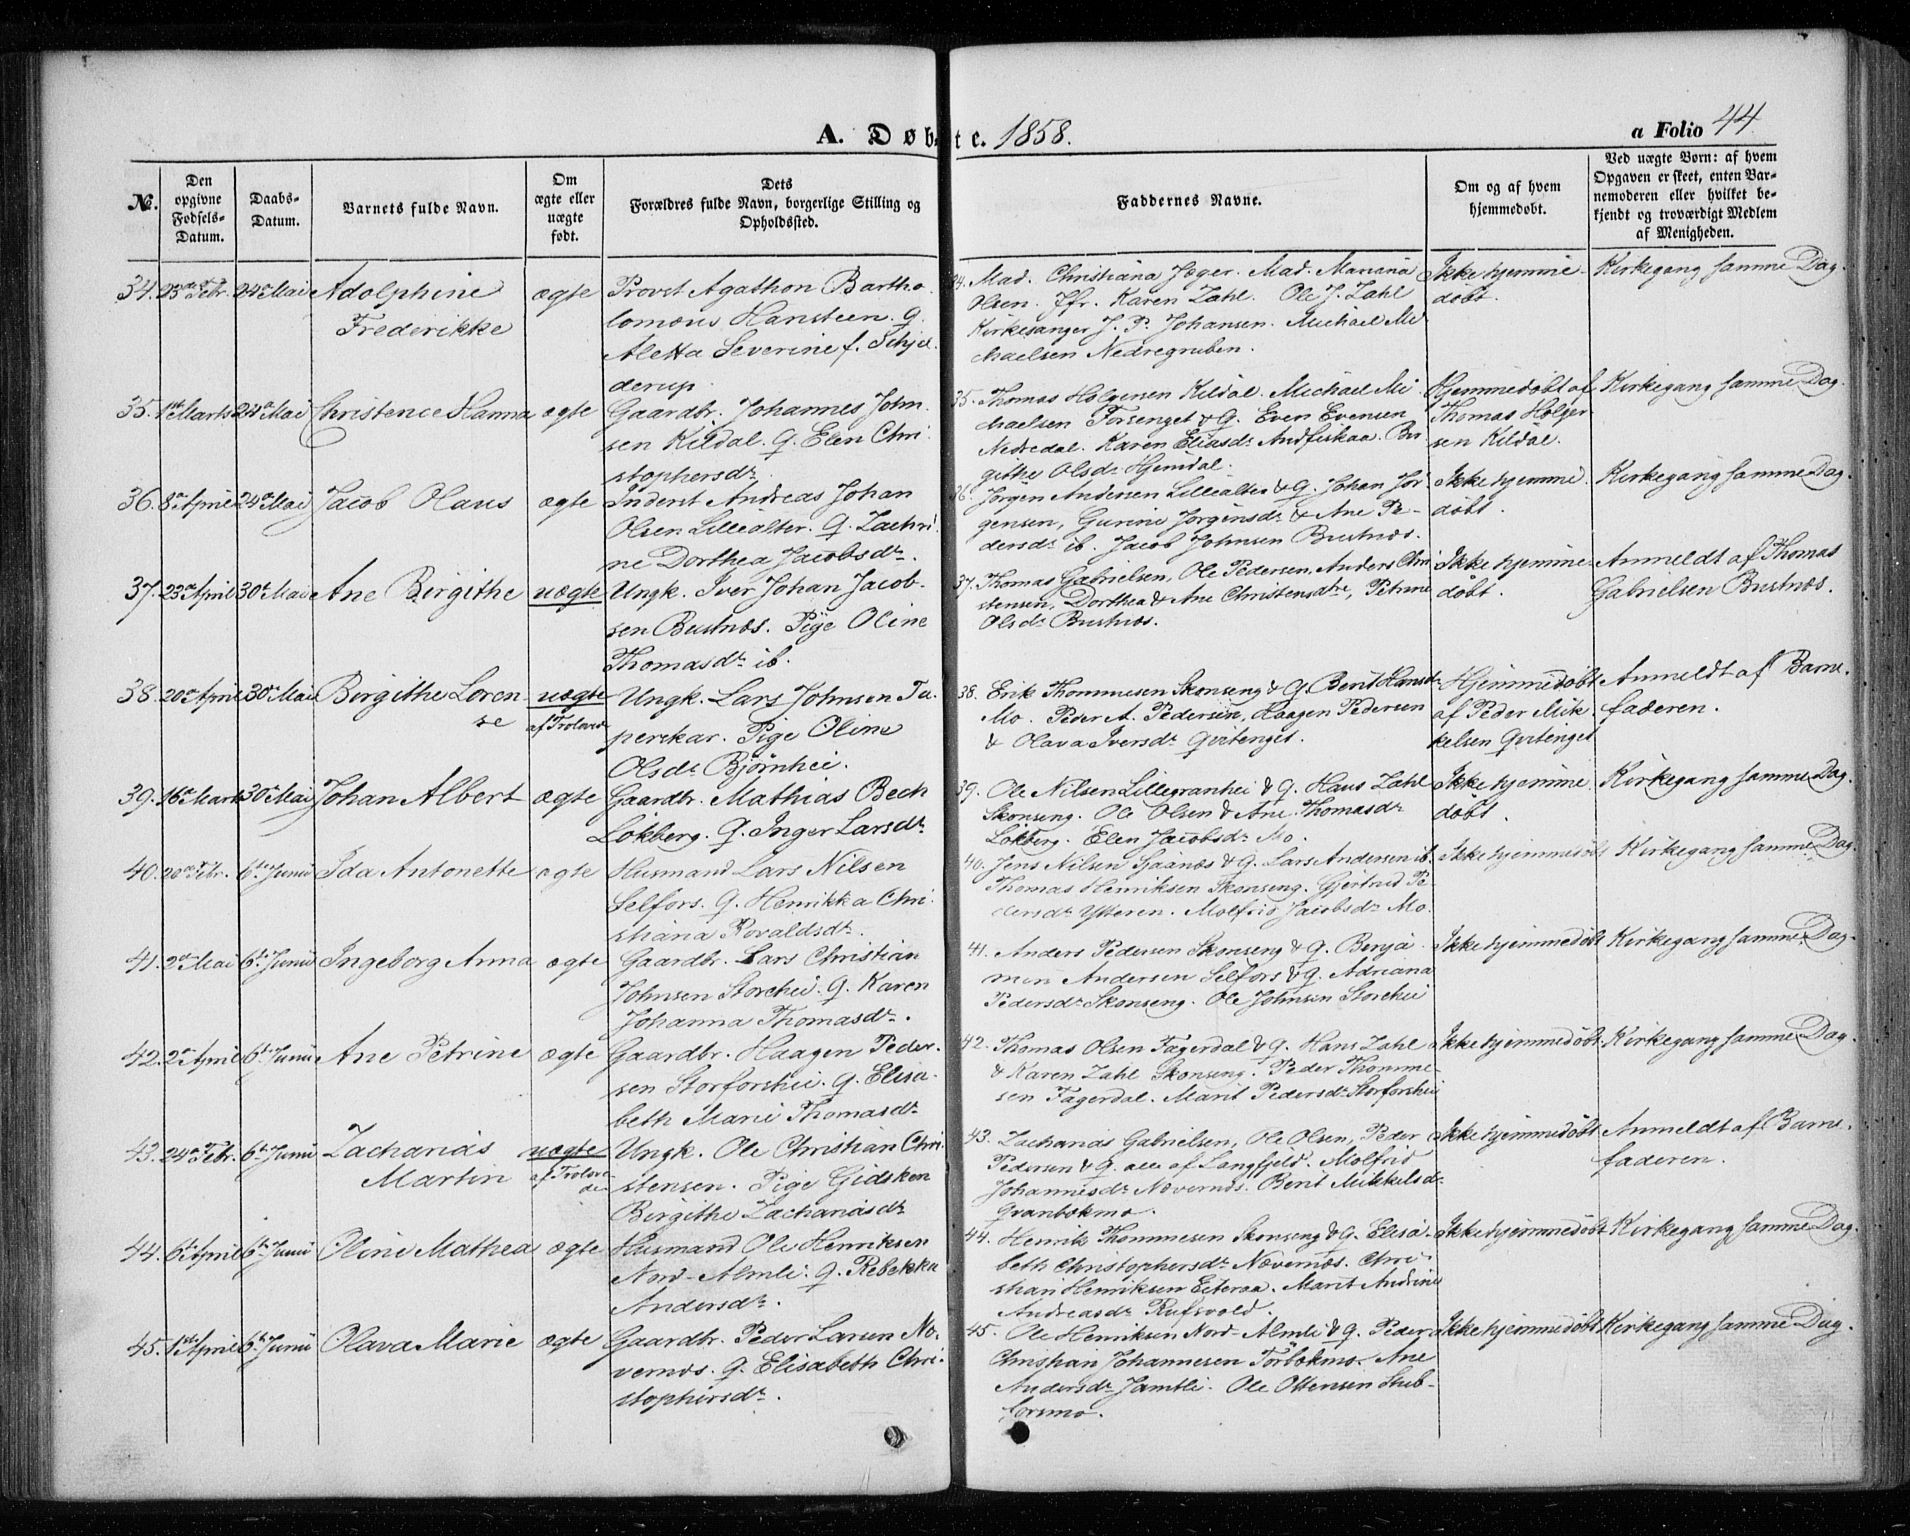 A. Døbte. 1858.
a Folio 44
No.
Den opgivne Fødsels-Datum.
Daabs-Datum.
Barnets fulde Navn.
Om ægte eller uægte født.
Dets Forældres fulde Navn, borgerlige Stilling og Opholdssted.
Faddernes Navne.
Om og af hvem hjemmedøbt.
Ved uægte Børn: af hvem Opgaven er skeet, enten Barnemoderen eller hvilket bekjendt og troværdigt Medlem af Menigheden.
34. 23de Febr. 24de Mai Adolphine Frederikke ægte
Provst Agathon Bartho-
lomæus Hansteen. G.
Aletta Severine f. Schjel-
derup.
34. Mad. Christiana Jæger. Mad. Mariana
Olsen. Jfr. Karen Zahl. Ole J. Zahl
Kirkesanger J. P. Johansen. Michael Mi-
chaelsen Nedregruben.
Ikke hjemme-
døbt.
Kirkegang samme Dag.
35. 1ste Marts 24de Mai Christence Hanna ægte
Gaardbr. Johannes John-
sen Kildal. G. Elen Chri-
stophersdr.
35. Thomas Holgersen Kildal. Michael Mi-
chaelsen Forsenget & G. Even Evensen
Nedredal. Karen Eliasdr Andfiskaa. Bir-
githe Olsdr Hjemdal.
Hjemmedøbt af
Thomas Holger-
sen Kildal.
Kirkegang samme Dag.
36. 8de April 24de Mai Jacob Olaus ægte
Inderst Andreas Johan
Olsen Lillealter. G. Zachri-
ne Dorthea Jacobsdr.
36. Jørgen Andersen Lillealter & G. Johan Jør-
gensen, Gurine Jørginsdr & Ane Pe-
dersdr ib. Jacob Johnsen Bustnes.
Ikke hjemme-
døbt.
Kirkegang samme Dag.
37. 23de April 30te Mai Ane Birgithe uægte
Ungk. Iver Johan Jacob-
sen Bustnæs. Pige Oline
Thomasdr ib.
37. Thomas Gabrielsen, Ole Pedersen, Anders Chri-
stensen, Dorthea & Ane Christensdtre, Petrine
Olsdr Bustnæs.
Ikke hjemme-
døbt.
Anmeldt af Thomas
Gabrielsen Bustnæs.
38. 20de April 30te Mai Birgithe Loren-
se uægte
af Trolovede
Ungk. Lars Johnsen Ta-
perskar. Pige Oline
Olsdr Bjørnhei.
38. Erik Thommesen Skonseng & G. Berit Hansdr
Mo. Peder A. Pedersen, Haagen Pedersen
& Olava Iversdr Qvitenget.
Hjemmedøbt
af Peder Mik-
kelsen Qvitenget
Anmeldt af Barne-
faderen.
39. 16de Marts 30te Mai Johan Albert ægte
Gaardbr. Mathias Bech
Løkberg. G. Inger Larsdr
39. Ole Nilsen Lillegranhei & G. Hans Zahl
Skonseng. Ole Olsen & Ane Thomasdr
Løkberg. Elen Jacobsdr Mo.
Ikke hjemme
døbt.
Kirkegang samme Dag.
40. 20de Febr. 6te Junii Ida Antonette ægte
Husmand Lars Nilsen
Selfors. G. Henrikka Chri-
stiana Rovaldsdr.
40. Jens Nilsen Sjaanæs & G. Lars Andersen ib.
Thomas Henriksen Skonseng. Gjertrud Pe-
dersdr Ytteren. Molfrid Jacobsdr Mo.
Ikke hjemmedøbt
Kirkegang samme Dag
41. 2den Mai 6te Junii Ingeborg Anna ægte
Gaardbr. Lars Christian
Johnsen Storehei. G. Karen
Johanna Thomasdr.
41. Anders Pedersen Skonseng & G. Benja-
min Andersen Selfors & G. Adriana
Pedersdr Skonseng. Ole Johnsen Storehei
Ikke hjemmedøbt
Kirkegang samme Dag.
42. 2den April 6te Junii Ane Petrine ægte
Gaardbr. Haagen Peder-
sen Storforshei. G. Elisa-
beth Marie Thomasdr
42. Thomas Olsen Fagerdal & G. Hans Zahl
& Karen Zahl Skonseng. Peder Thomme-
sen Fagerdal. Marit Pedersdr Storforshei
Ikke hjemmedøbt
Kirkegang samme Dag.
43. 24de Febr. 6te Junii Zacharias
Martin uægte
af Trolove-
de
Ungk. Ole Christian Chri-
stensen. Pige Gidsken
Birgithe Zachariasdr
43. Zacharias Gabrielsen, Ole Olsen, Peder
Pedersen & G. alle af Langfjeld. Molfrid
Johannesdr Nævernæs. Berit Mikkelsdr
Granbokmo.
Ikke hjemmedøbt
Anmeldt af Barne-
faderen.
44. 6te April 6te Junii Oline Mathea ægte
Husmand Ole Henriksen
Nord-Almli. G. Rebekka
Andersdr.
44. Henrik Thommesen Skonseng & G. Elisa-
beth Christophersdr Nævernæs. Chri-
stian Henriksen Eiteraa. Marit Andrine
Andreasdr Rufsvold.
Ikke hjemmedøbt
Kirkegang samme Dag.
45. 1ste April 6te Junii Olava Marie ægte
Gaardbr. Peder Larsen Næ-
vernæs. G. Elisabeth Chri-
stophersdr.
45. Ole Henriksen Nord-Almli & G. Peder
Christian Johannesen Tørbækmo. Ane
Andersdr Jamtli. Ole Ottensen Stub-
forsmo.
Ikke hjemmedøbt
Kirkegang samme Dag.